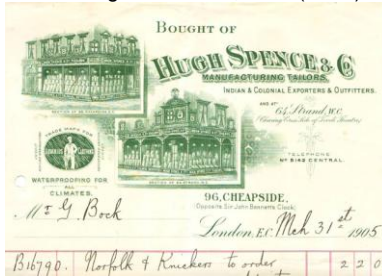 BOUGHT OF
HUGH SPENCE & Co
MANUFACTURING TAILORS.
INDIAN & COLONIAL EXPORTERS & OUTFITTERS.
AND AT
64 Strand, W.C.
TELEPHONE
No 5143 CENTRAL.
TRADE MARK FOR
WATERPROOFING FOR
ALL
CLIMATES.
96, CHEAPSIDE,
(Opposite Sir John Bennett's Clock)
London, E.C. Mch 31st 1905
Mr G. Bock
B16790. Norfolk & Knickers to order 2 2 0